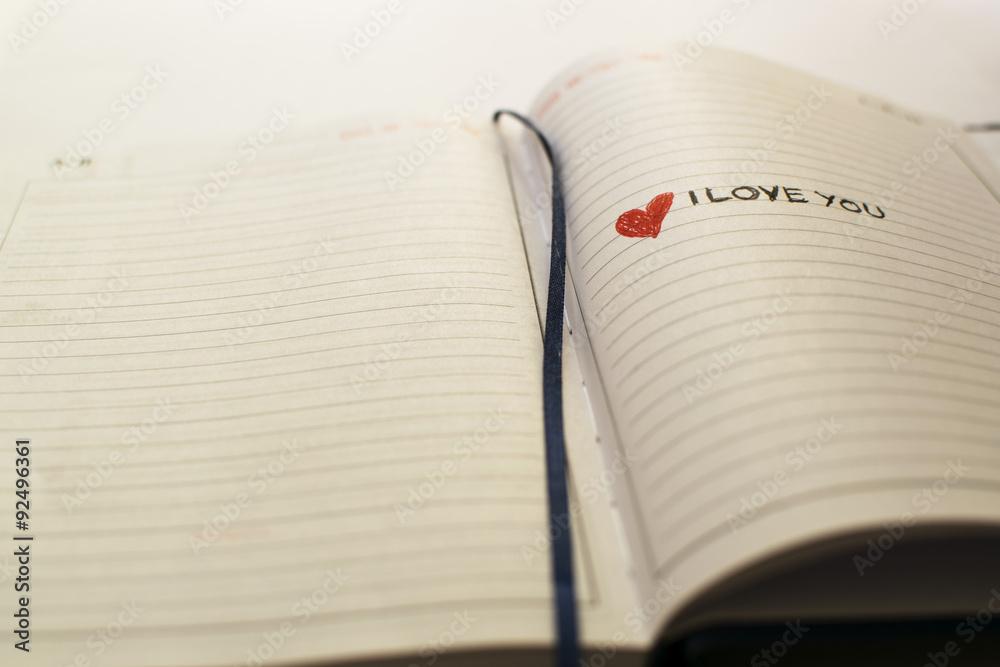 I LOVE YOU
Adobe Stock | #92496361